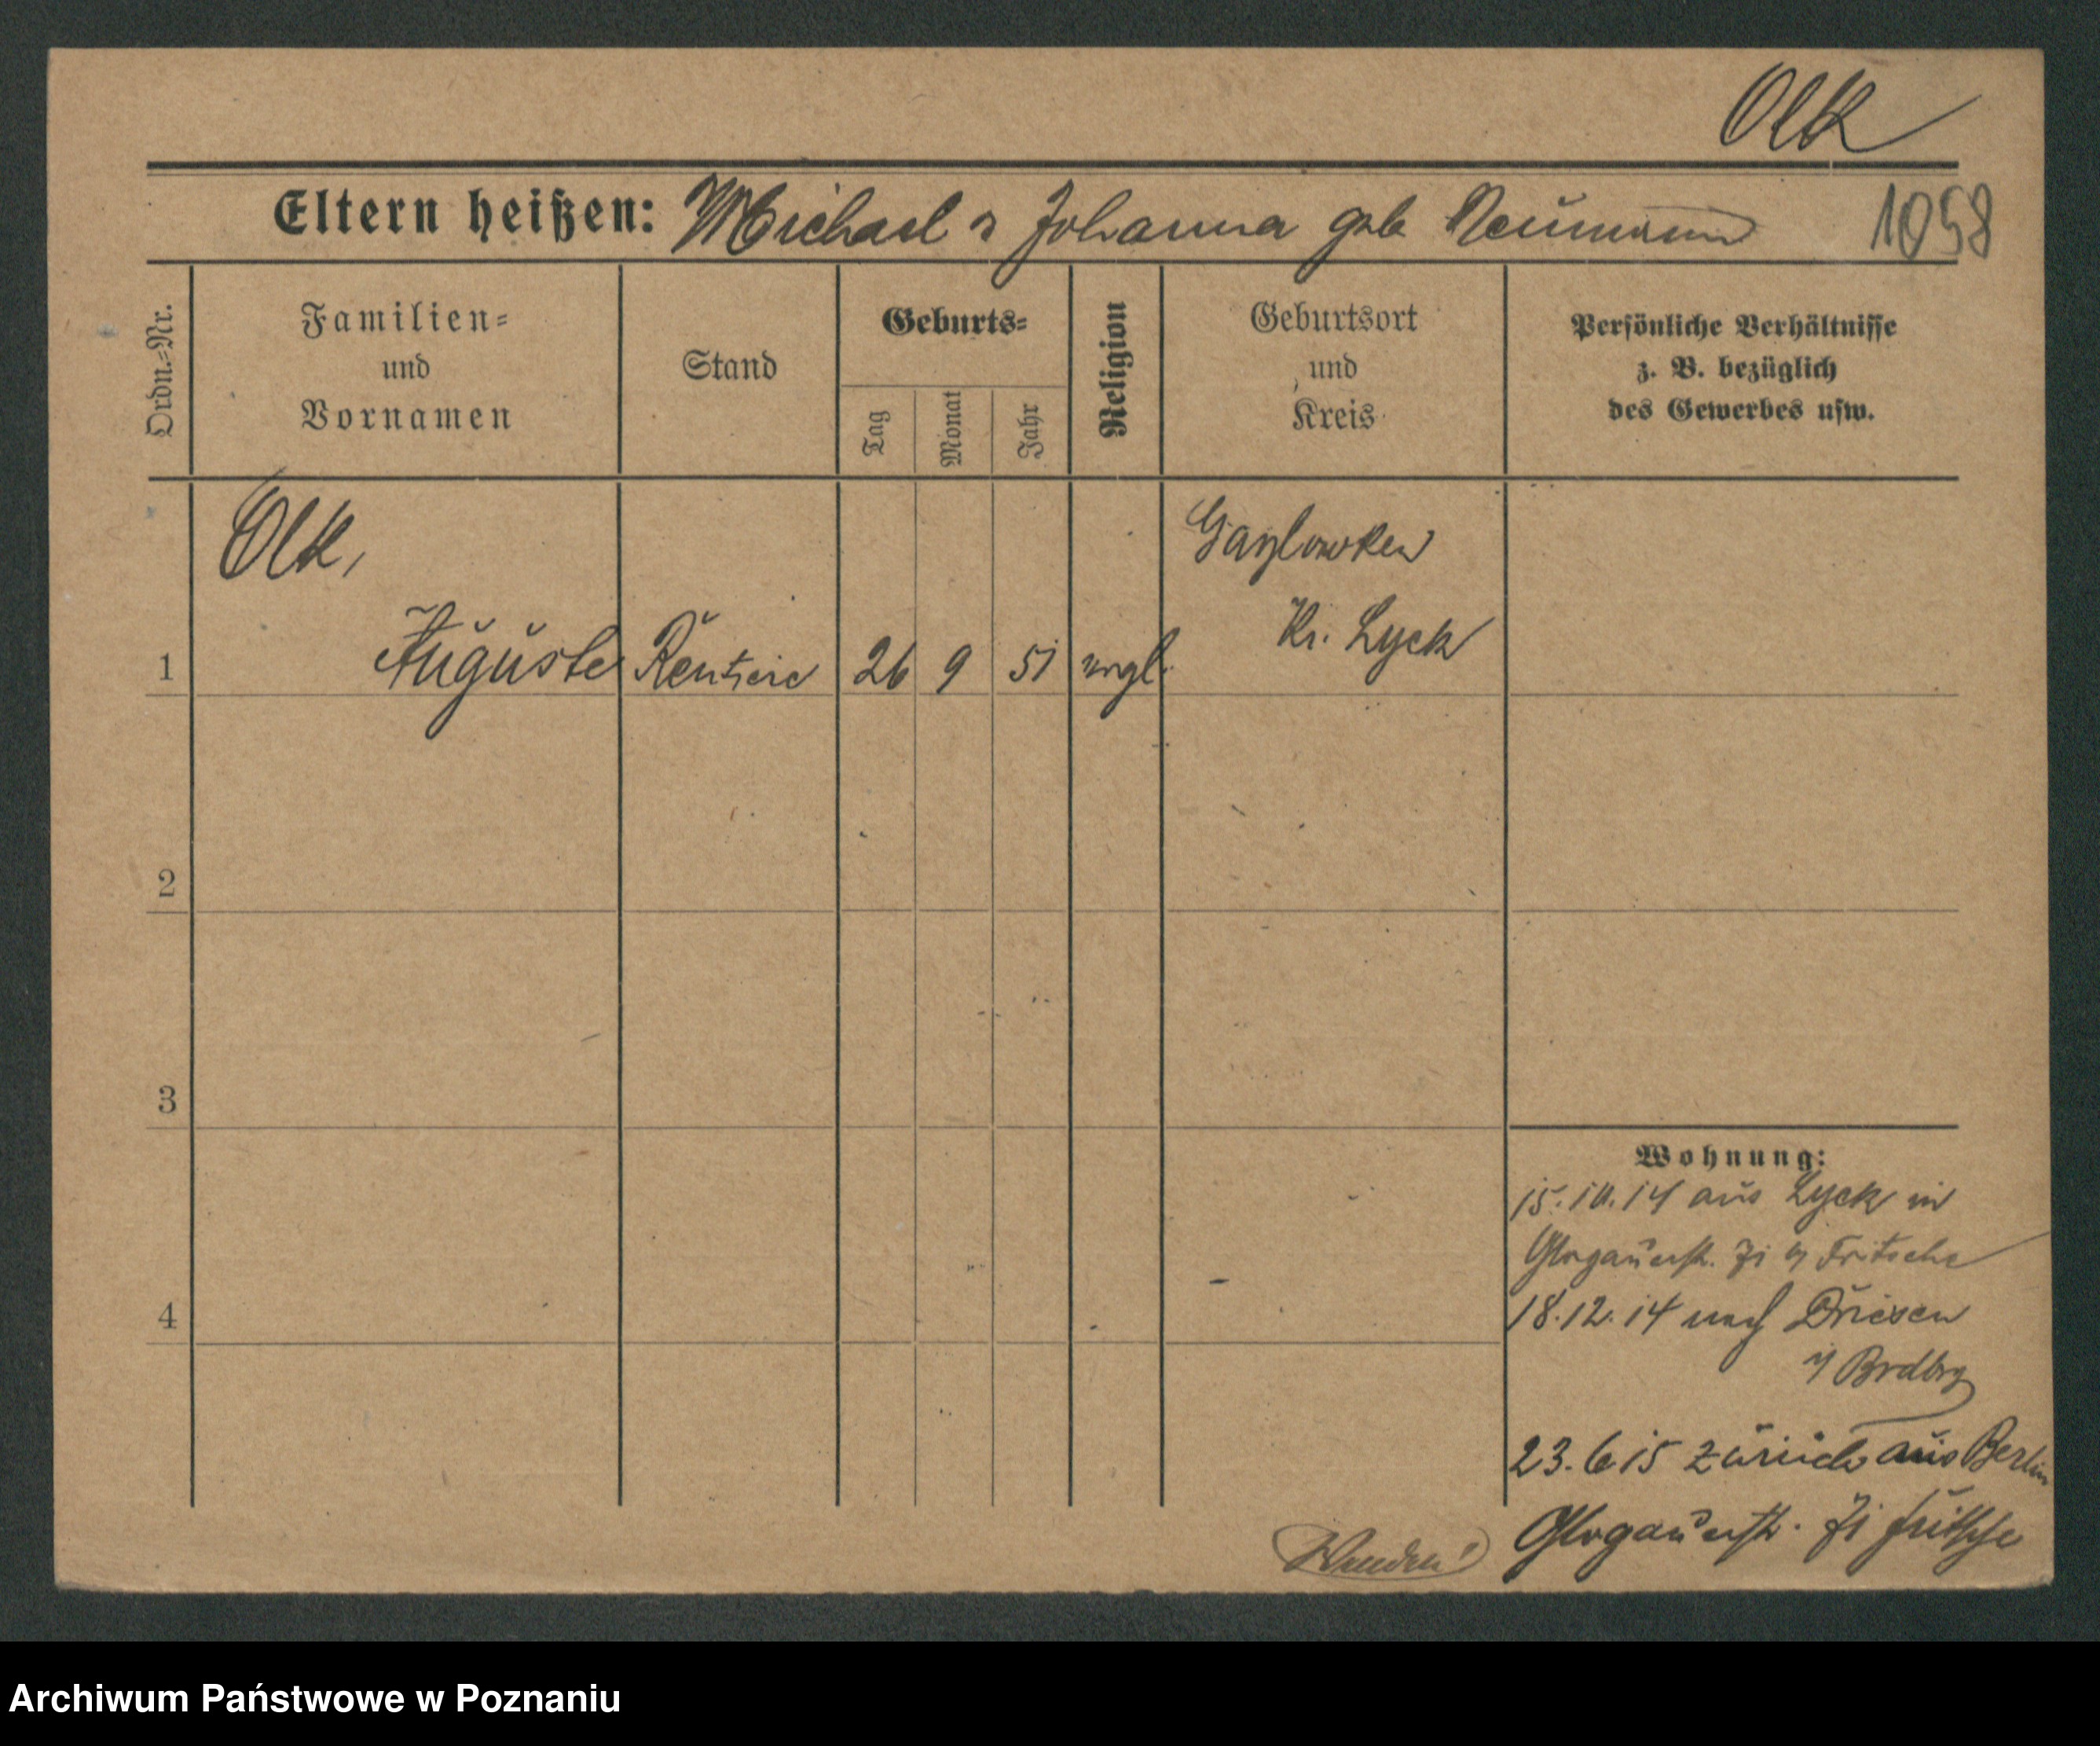 Olk
Eltern heißen: Michael u Johanna geb Neumann 1058
Ordn.=Nr.
Familien=
und
Vornamen
Stand
Geburts=
Tag
Monat
Jahr
Religion
Geburtsort
und
Kreis
Persönliche Verhältnisse
z. B. bezüglich
des Gewerbes usw.
Olk,
Kr. Lyck
1 Auguste Rentiere 26 9 51 evgl.
2
3
4
Wohnung:
15.10.14 aus Lyck in
Glogauerstr. Fritsche
18.12.14 nach Driesen
Brdbrg
23.6 15 zurück aus Berlin
Glogauerstr. Fritsche
Wenden!
Archiwum Państwowe w Poznaniu